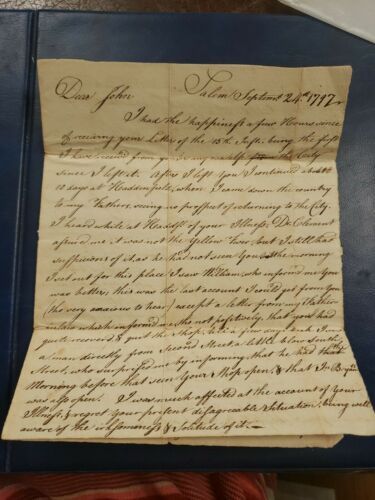 Dear John Salem Septemr. 24th. 1797
I had the happiness a few Hours since
of receiving your Letter of the 15th. Inst. being the first
I have received from you or any the City
since I left it. After I left You I continued about
10 days at Haddonfield, when I came down the country
to my Fathers, seeing no prospect of returning to the City.
I heard while at Headdfd. of your Illness, Dr. Clement
assured me it was not the Yellow fever, but I still had
suspicions of it as he had not seen You, the morning
I set out for this place I saw William, who informed me You
was better, this was the last account I could get from You
(tho very anxious to hear) except a letter from my Father
in law which informed me tho not positively, that you had
quite recovered & quit the shop, till a few days ago I
a man directly from Second Street a little below south
Street, who surprised me by informing that he had that
Morning before that seen Your Shop open, & that Jn.
was also open. I was much affected at the account of Your
Illness, & regret Your present disagreeable Situation, being well
aware of the irksomeness & Solitude of it.—